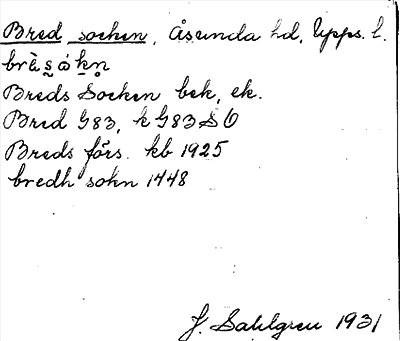 Bred socken, Åsunda hd, Upps. l.
brɛ̀s̬ȧkn̥
Breds Socken bek, ek.
Bred G83, k G83 SO
Breds förs. kb 1925
bredh sokn 1448
J. Sahlgren 1931